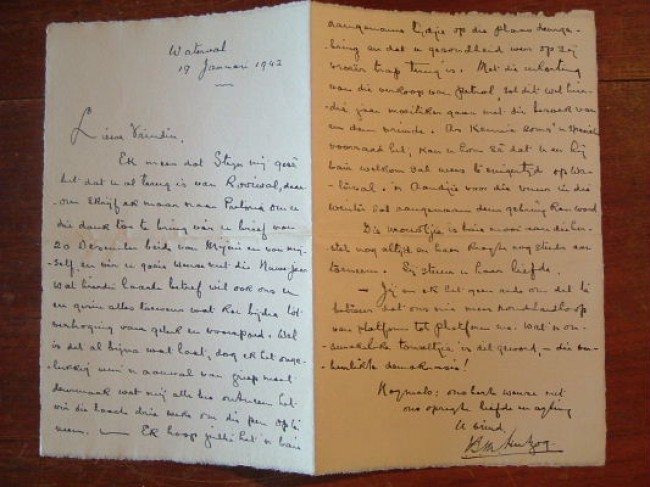 Waterval
19 Januari 1942
Liewe Vriendin,
Ek meen dat Steyn my gesê
het dat u al terug is van Rooiwal, daar-
om skryf ek maar naar Pretoria om u
die dank toe te bring vir u brief van
20 Desember beide van Mynie en van my-
self, en vir u goeie wense met die Nuwe Jaar
Wat hierdie laaste betref wil ook ons u
en gesin alles toewens wat kan bydra tot
verhoging van geluk en voorspoed. Wel
is dit al byna wat laat, dog ek het onge-
lukkig weer 'n aanval van griep moet
deurmaak wat my alle lus ontneem het
vir die laaste drie weke om die pen op te
neem. — Ek hoop julle het 'n baie
aangename tydjie op die plaas deurge-
bring en dat u gesondheid weer op sy
vroeër trap terug is. Met die
van die verkoop van petrol, sal dit wel hier-
die jaar moeiliker gaan met die besoek van
en aan vriende. As Kennie soms 'n spesiale
voorraad het, kan u hom sê dat u en hy
baie welkom sal wees te enigertyd op Wa-
terval. 'n Aandjie voor die vuur in die
winter sal aangenaam deurgebring kan word
Die is hier mooi aan die her-
stel nog altyd en haar nog steeds aan
toeneem. Sy stuur u haar liefde.
— Jy en ek het geen rede om dit te
betreur dat ons nie meer rondhardloop
van platform tot platform nie. Wat 'n on-
smaaklike toneeltjie is dit geword, — die on-
heerlikke demokrasie!
Nogmaals: ons beste wense met
ons opregte liefde en agting
U vriend.
JBM Hertzog